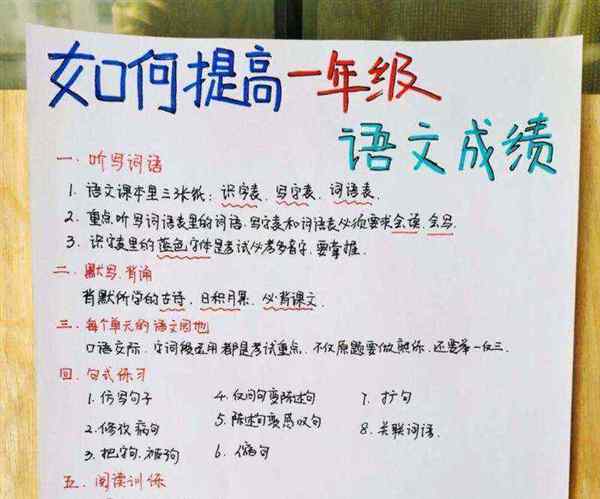 如何提高一年级
语文成绩
一、听写词语
1. 语文课本里三张纸：识字表、写字表、词语表.
2. 重点听写词语表里的词语,写字表和词语表必须要求会读、会写.
3. 识字表里的蓝色字体是考试必考多音字,要掌握.
二、默写、背诵
背默所学的古诗、日积月累、必背课文.
三、每个单元的语文园地
口语交际、字词段运用都是考试重点,不仅原题要做熟练,还要举一反三.
四、句式练习
1. 仿写句子 4. 反问句变陈述句 7. 扩句
2. 修改病句 5. 陈述句变感叹句 8. 关联词语.
3. 把字句、被字句 6. 缩句
五、阅读训练